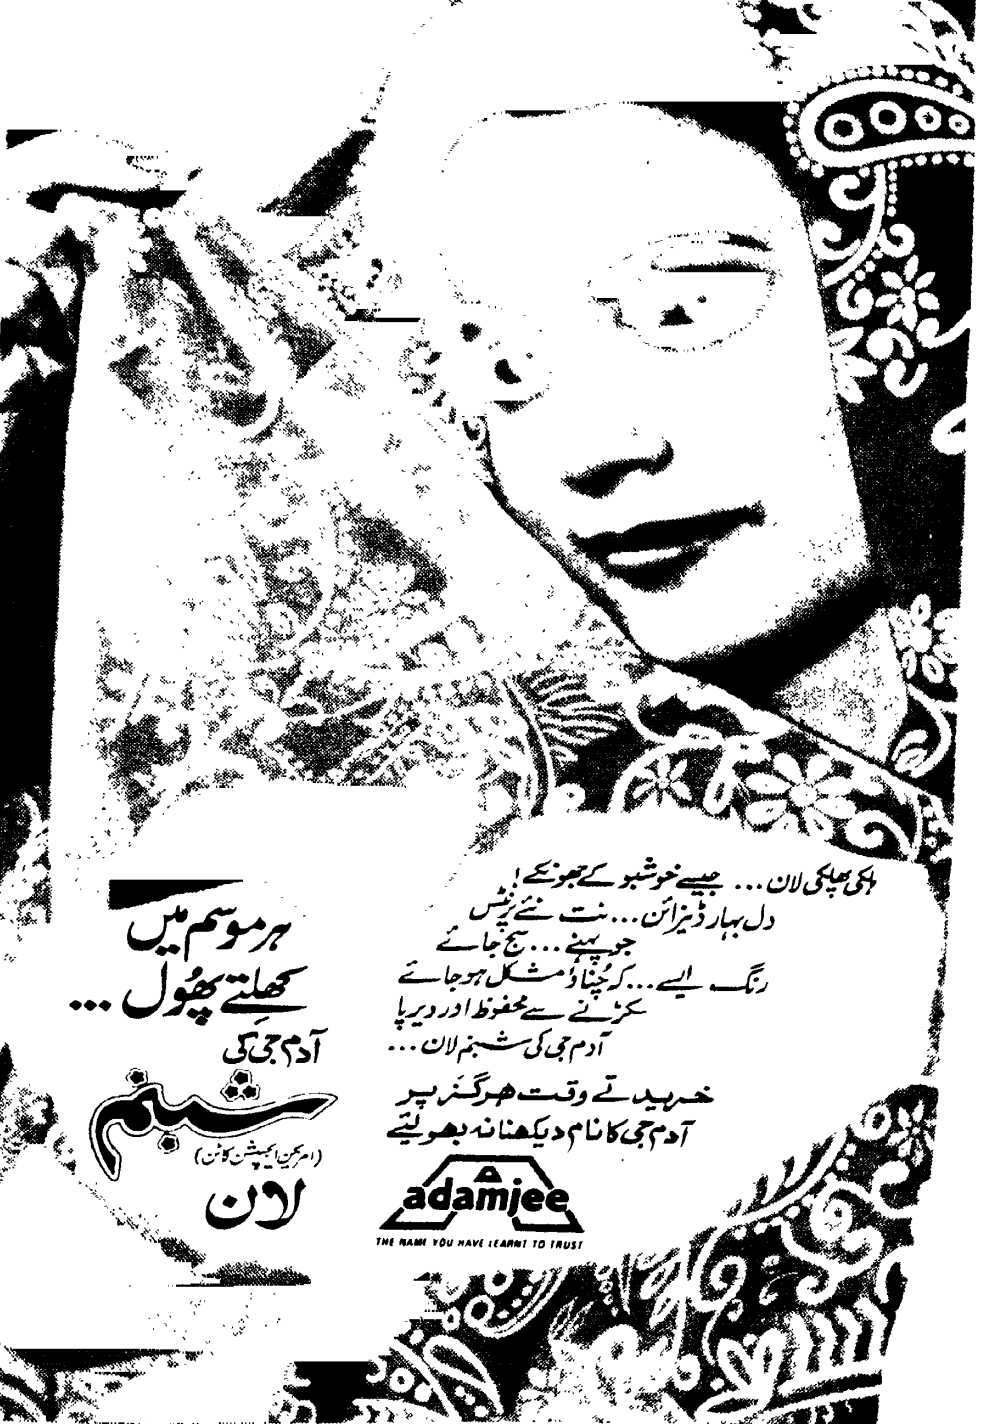 ہلکی پھلکی لان ... جیسے خوشبو کے جھونکے!
دل بہار ڈیزائن ... نت نئے پرنٹس
جو پہنے ... سج جائے
رنگ ایسے ... کہ چُناؤ مشکل ہو جائے
سکڑنے سے محفوظ اور دیرپا
آدم جی کی شبنم لان ...
خریدتے وقت ہر گز پر
آدم جی کا نام دیکھنا نہ بھولیئے
adamjee
THE NAME YOU HAVE LEARNT TO TRUST
ہر موسم میں
کھلتے پھول ...
آدم جی کی
شبنم
(امریکن ایجپشن کاٹن)
لان